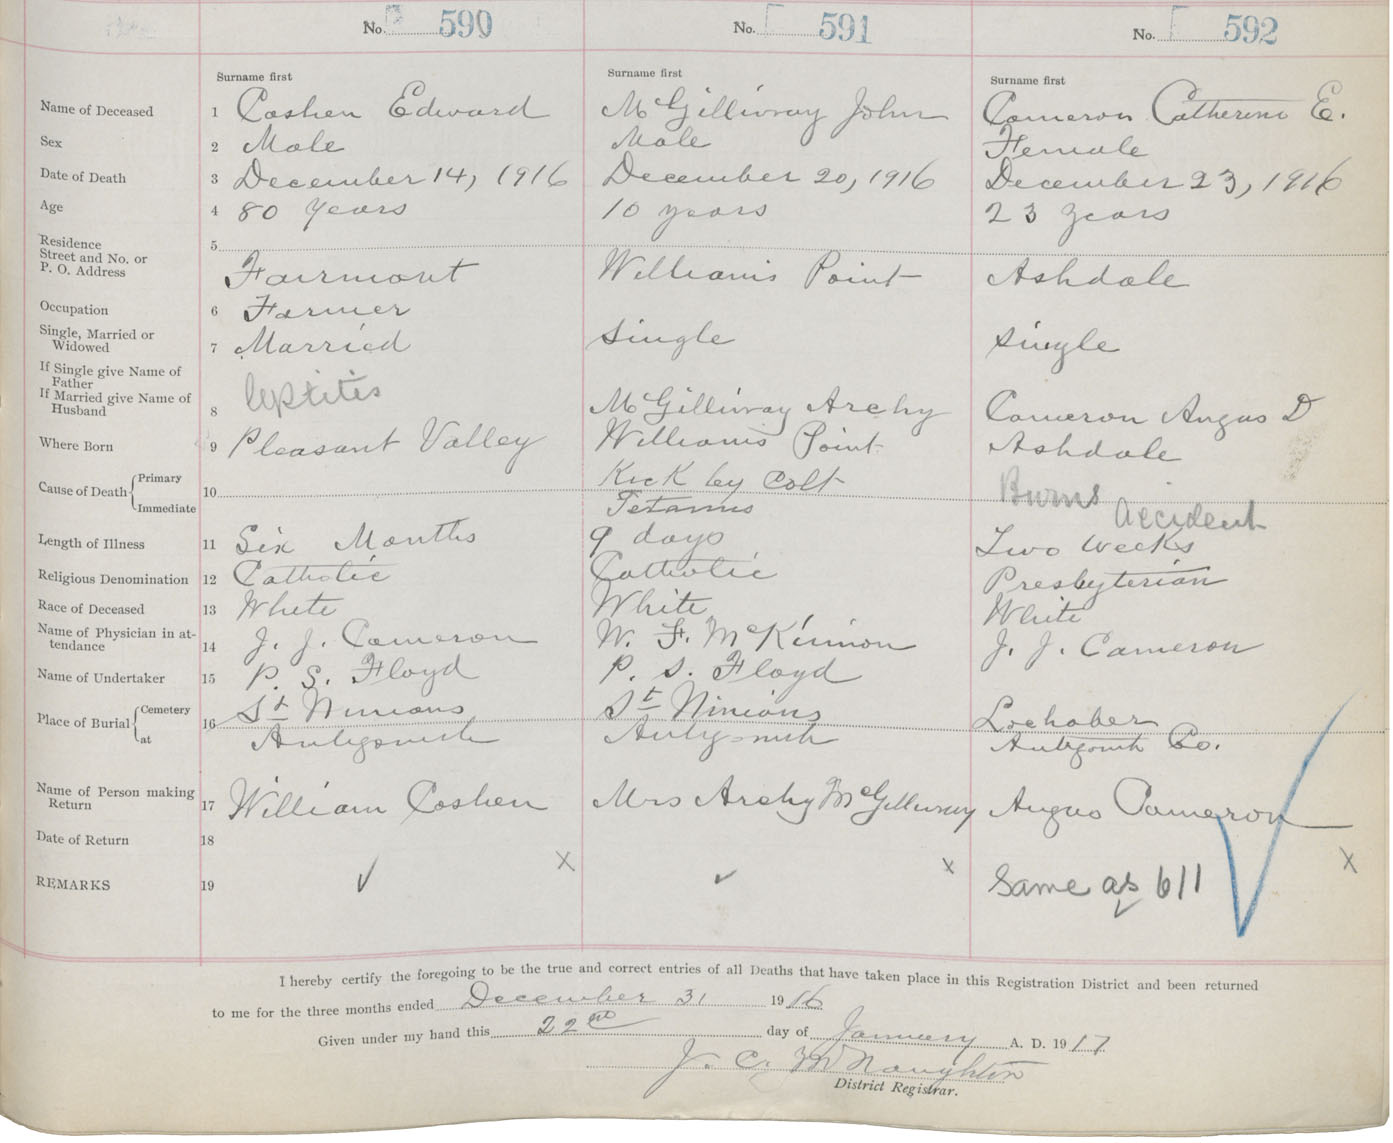 No. 590 No. 591 No. 592
Surname first Surname first Surname first
Name of Deceased 1 Coshen Edward McGillivray John Cameron Catherine E.
Sex 2 Male Male Female
Date of Death 3 December 14, 1916 December 20, 1916 December 23, 1916
Age 4 80 years 10 years 23 years
Residence Street and No. or P. O. Address 5 Fairmont Williams Point Ashdale
Occupation 6 Farmer
Single, Married or Widowed 7 Married Single Single
If Single give Name of Father
If Married give Name of Husband 8 McGillivray Archy Cameron Angus D
Where Born 9 Pleasant Valley Williams Point Ashdale
Cause of Death Primary 10 Kick by Colt Burns
Immediate Tetanus accident
Length of Illness 11 Six Months 9 days Two weeks
Religious Denomination 12 Catholic Catholic Presbyterian
Race of Deceased 13 White White White
Name of Physician in attendance 14 J. J. Cameron W. F. McKinnon J. J. Cameron
Name of Undertaker 15 P. S. Floyd P. S. Floyd
Place of Burial Cemetery 16 St Ninians St Ninians Lochaber
at Antigonish Antigonish Antigonish Co.
Name of Person making Return 17 William Coshen Mrs Archy McGillivray Angus Cameron
Date of Return 18
REMARKS 19 Same as 611
I hereby certify the foregoing to be the true and correct entries of all Deaths that have taken place in this Registration District and been returned
to me for the three months ended December 31 1916
Given under my hand this 22nd day of January A. D. 1917
J. C. McNaughton
District Registrar.